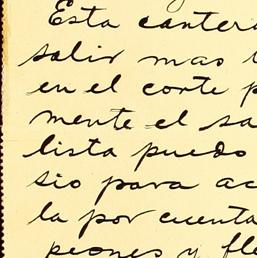 Esta canter
salir mas
en el corte p
mente el sa
lista puedo
sio para ac
la por cuenta
peones y fle